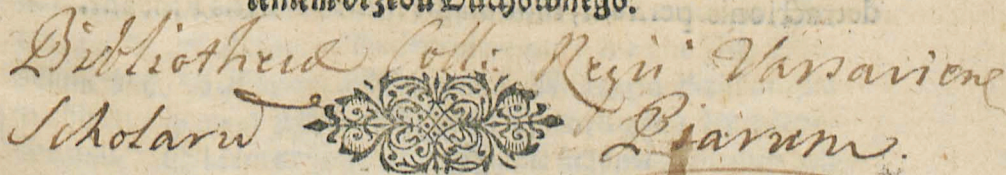 Duchownego.
Bibliothecae Coll: Regii Varsaviens
Scholaru Piarum.